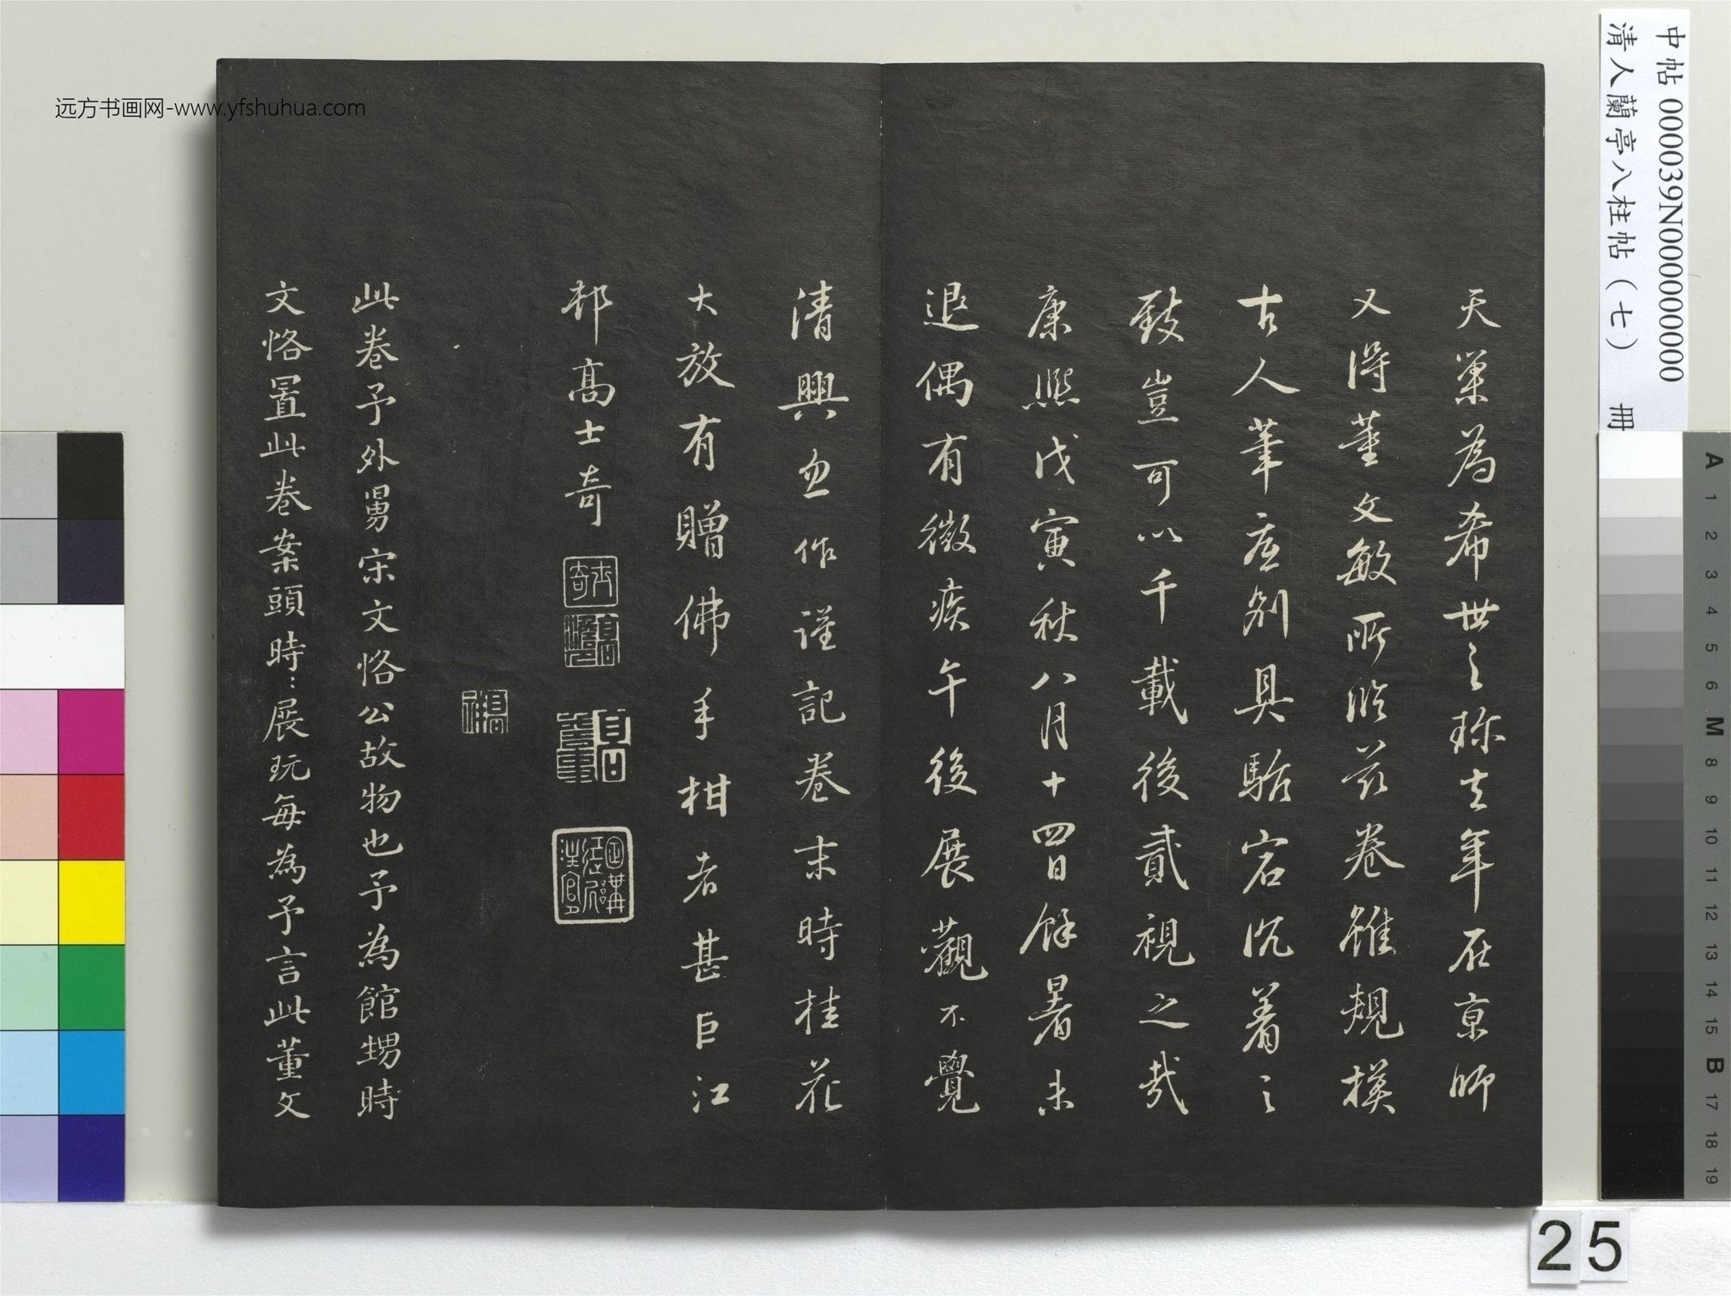 远方书画网-www.yfshuhua.com
中帖 000039N000000000
清人蘭亭八柱帖（七） 冊
天巢為希世之珎去年在京師
又得董文敏所臨茲卷雖規摸
古人筆意別具駘宕沉着之
致豈可以千載後貳視之哉
康熙戊寅秋八月十四日餘暑未
退偶有微疾午後展觀不覺
清興忽作謹記卷末時桂花
大放有贈佛手柑者甚巨江
邨高士奇
士奇
高
此卷予外舅宋文恪公故物也予為館甥時
文恪置此卷案頭時:展玩每為予言此董文
25
A 1 2 3 4 5 6 M 8 9 10 11 12 13 14 15 B 17 18 19